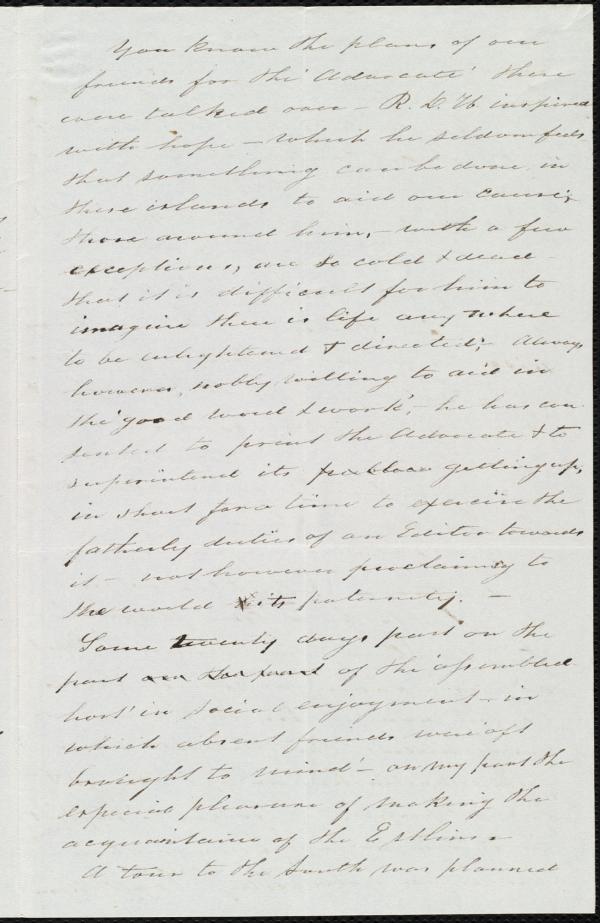 You know the plans of our
friends for the 'Advocate' these
were talked over – R. D. W. inspired
with hope – which he seldom feels
that something can be done in
these islands to aid our cause;
those around him, – with a few
exceptions, are so cold & dead
that it is difficult for him to
imagine there is life any where
to be enlightened & directed; Always
however, nobly willing to aid in
the 'good word & work', – he has con
sented to print the Advocate & to
superintend its getting up,
in short for a time to exercise the
fatherly duties of an Editor towards
it – not however proclaiming to
the world its paternity. –
Some twenty days past on the
part of the 'assembled
host' in social enjoyment – in
which absent friends were 'oft
brought to mind' – on my part the
especial pleasure of making the
acquaintance of the Estlins –
A tour to the South was planned